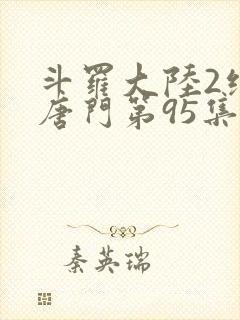 斗羅大陸2
唐門第95集
秦英瑞